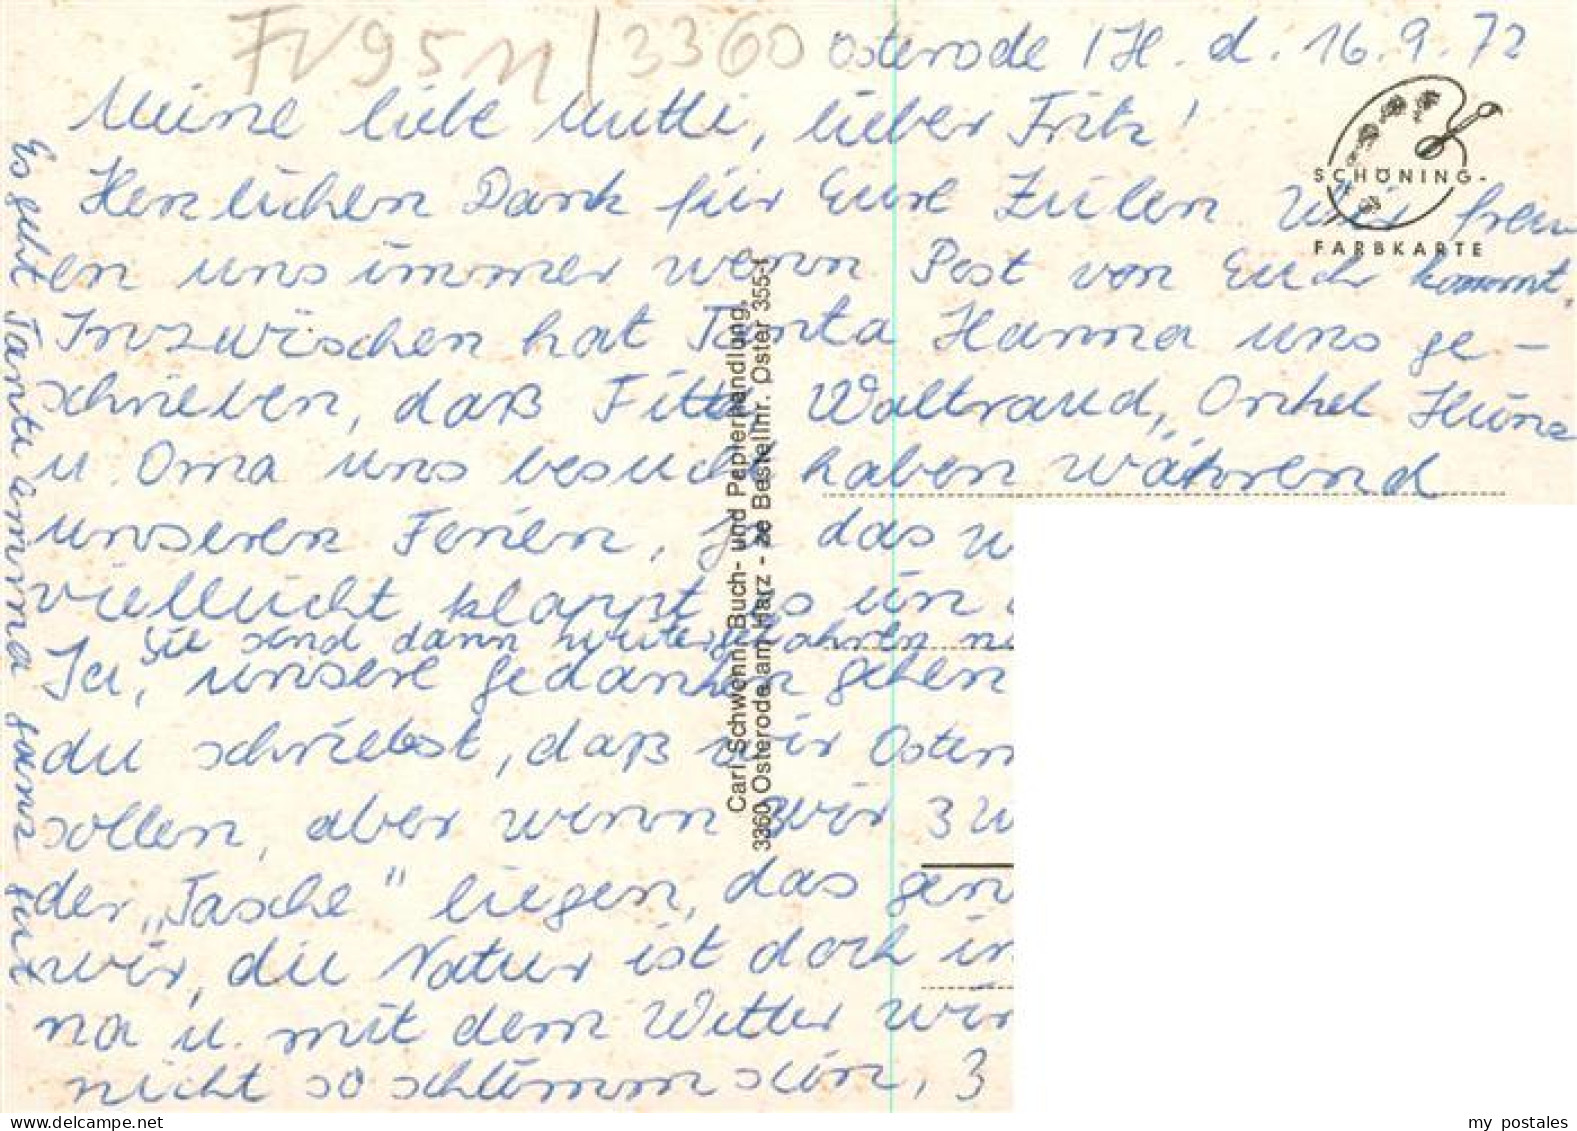 FV95M/3360
Osterode /H. d. 16.9.72
Meine liebe Mutti, lieber Fritz!
SCHÖNING-
FARBKARTE
Herzlichen Dank für Eure Zeilen Wir freu
en uns immer wenn Post von Euch kommt.
Inzwischen hat Tanta Hanna uns ge-
schrieben, daß Waltraud, Onkel Heinz
u. Oma uns besucht haben während
unseren Ferien,
das
vielleicht klappt es
Sie sind dann weitergefahren
Ja, unsere gedanken gehen
du schriebst, daß wir Oster
sollen, aber wenn wir 3 W
der „Tasche" liegen, das gen
wir, die Natur ist doch in
na u. mit dem Wetter wir
nicht so schlimm sein, 3
Es geht Tante amma ganz gut.
Carl Schwenn, Buch- und Papierhandlung,
3360 Osterode am Harz - ze Bestellnr. Oster 355-f
my postales